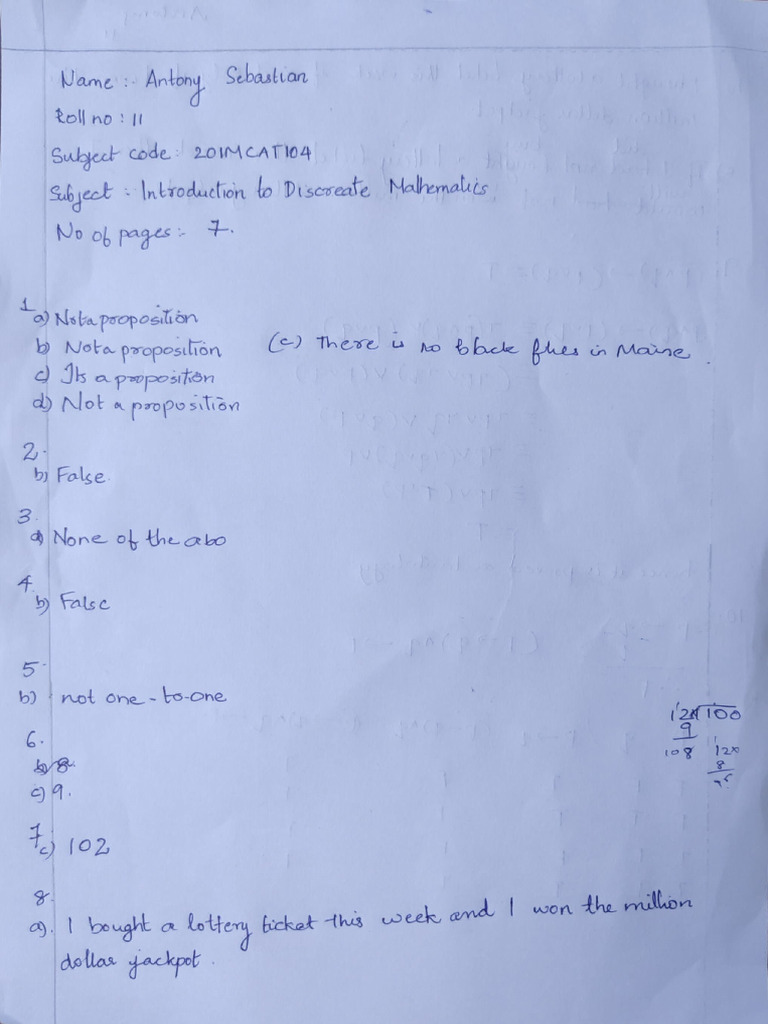 Name :- Antony Sebastian
Roll no : 11
Subject code: 20IMCAT104
Subject : Introduction to Discreate Mathematics
No of pages :- 7.
1
a) Not a proposition
b) Not a proposition
(c) There is no black flies in Maine.
c) Its a proposition
d) Not a proposition
2.
b) False.
3.
d) None of the abo
4.
b) False
5.
b) not one-to-one
6.
b) 8
c) 9.
12 100
9
108 12x
8
7.
c) 102
8.
a). I bought a lottery ticket this week and I won the million
dollar jackpot.